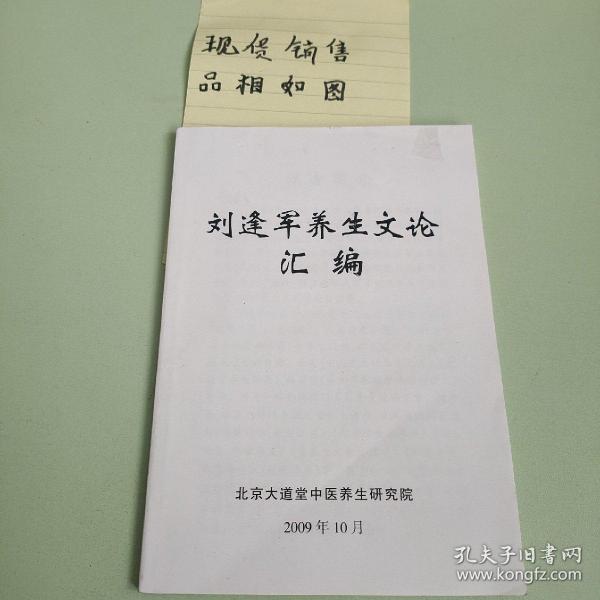 现货销售
品相如图
刘逢军养生文论
汇编
北京大道堂中医养生研究院
2009年10月
孔夫子旧书网
www.kongfz.com